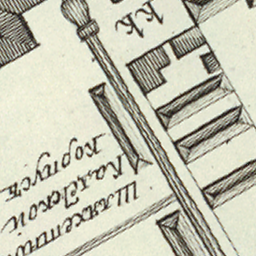 Шляхетнои
Кадѣцкой
корпусъ
КК